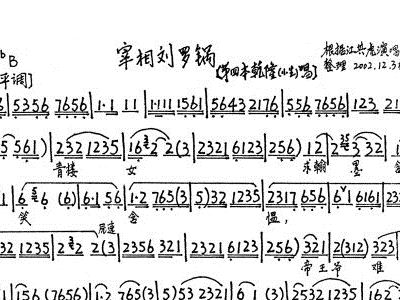 ♭B
宰相刘罗锅
[第四本乾隆(小生)唱]
根据江共虎演唱
整理 2002.12.3
平调]
5356 7656 | 1·1 11 | 1·111 1561 | 5643 2176 | 556 7656 | 123 21
5 561) | 232 1235 | 16 2 2 2(3 | 2321 6123 | 256) 12 | 2 32
青楼 女 乐翰 墨
6 6 (6) | 6·1 56 | 1·2 765(3 | 5)32 1235 | 2317 656 | 6 6161 | 23
笑 念 愠,
尾连
32 1235 | 2 2 2(3 | 2356 321 | 2321 6123 | 256) 321 | 2(312) 323
帝王爷 难
156 (7656) | 1·2 765(3 | 5)53 2321 | 6 1(3 | 2532 1235